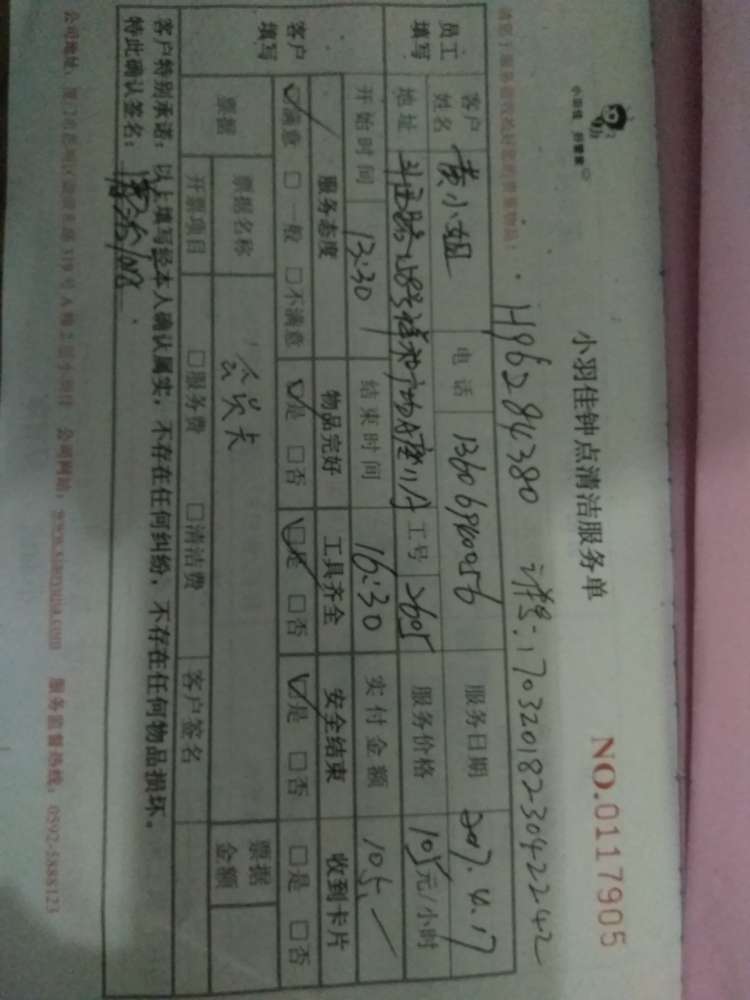 小羽佳 好管家
小羽佳钟点清洁服务单
NO.0117905
H96284380
1703201823042242
员工填写
客户姓名 黄小姐 电话 13606940056 服务日期 2017.4.17
地址 工号 2605 服务价格 105元/小时
开始时间 13:30 结束时间 16:30 实付金额 105.
客户填写
服务态度 物品完好 工具齐全 安全结束 收到卡片
☑满意 □一般 □不满意 ☑是 □否 ☑是 □否 ☑是 □否 □是 □否
票据 票据名称 票据金额
开票项目 □服务费 □清洁费 客户签名
客户特别承诺：以上填写经本人确认属实，不存在任何纠纷，不存在任何物品损坏。
特此确认签名：
公司网站：www.xiaoyujia.com 服务监督热线：0592-5888123